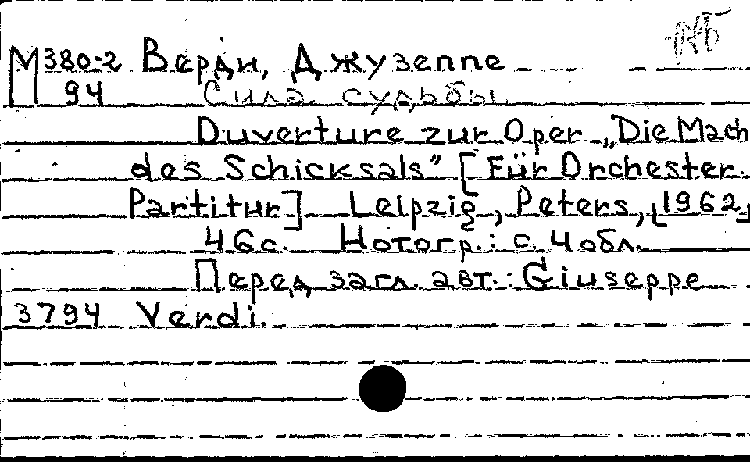 М 380-2 Верди, Джузеппе
94 Сила судьбы
Ouverture zur Oper „Die Mach
des Schicksals" [Für Orchester.
Partitur] Leipzig, Peters, [1962]
46 с. Нотогр.: с. 4 обл.
Перед загл. авт.: Giuseppe
3794 Verdi.